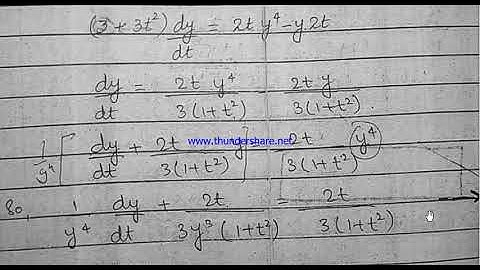 (3 + 3t²) dy/dt = 2t y⁴ - y2t
dy/dt = 2t y⁴/3(1+t²) - 2t y/3(1+t²).
1/y⁴ [ dy/dt + 2t/3(1+t²) y = 2t/3(1+t²) y⁴
www.thundershare.net
So, 1/y⁴ dy/dt + 2t/3y³(1+t²) = 2t/3(1+t²)